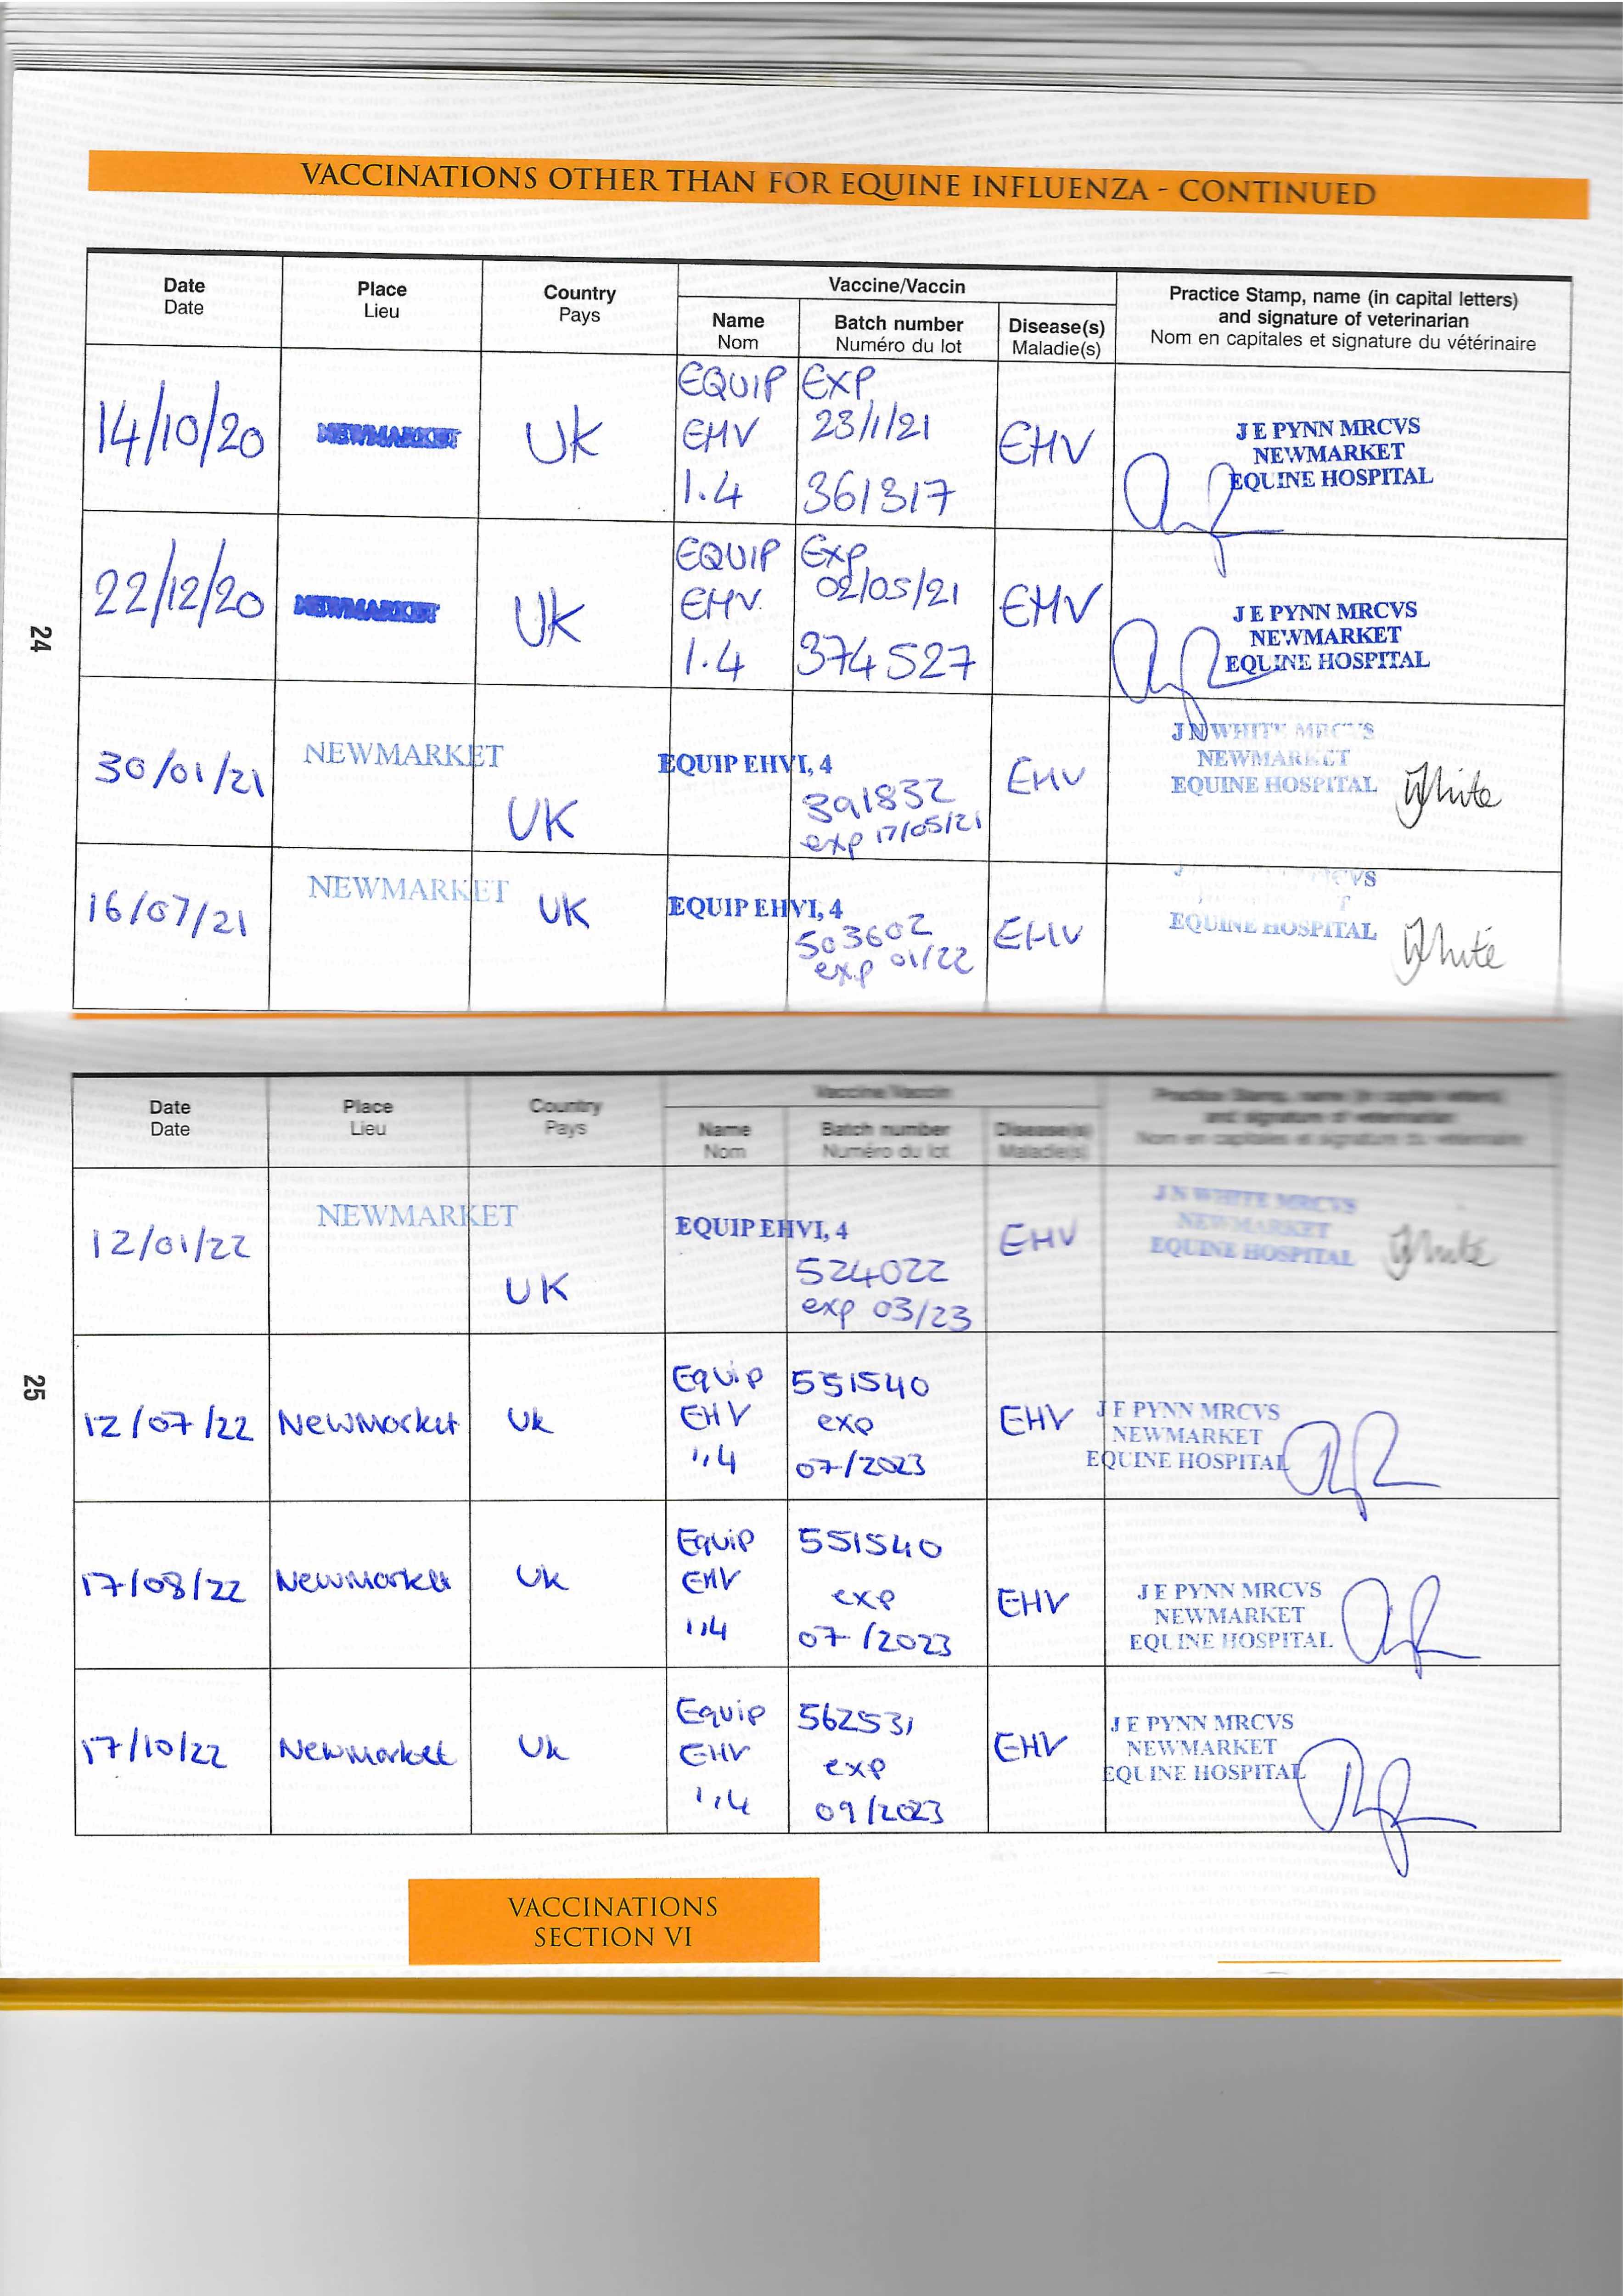 VACCINATIONS OTHER THAN FOR EQUINE INFLUENZA - CONTINUED
Date
Date
Place
Lieu
Country
Pays
Vaccine/Vaccin
Name
Nom
Batch number
Numéro du lot
Disease(s)
Maladie(s)
Practice Stamp, name (in capital letters)
and signature of veterinarian
Nom en capitales et signature du vétérinaire
14/10/20
NEWMARKET
UK
EQUIP
EHV
1.4
EXP
23/1/21
361317
EHV
J E PYNN MRCVS
NEWMARKET
EQUINE HOSPITAL
22/12/20
NEWMARKET
UK
EQUIP
EHV
1.4
Exp
02/05/21
374527
EHV
J E PYNN MRCVS
NEWMARKET
EQUINE HOSPITAL
24
30/01/21
NEWMARKET
UK
EQUIP EHV1, 4
391832
exp 17/05/21
EHV
J N WHITE MRCVS
NEWMARKET
EQUINE HOSPITAL
White
16/07/21
NEWMARKET
UK
EQUIP EHV1, 4
503602
exp 01/22
EHV
EQUINE HOSPITAL
White
Date
Date
Place
Lieu
Country
Pays
Vaccine/Vaccin
Name
Nom
Batch number
Numéro du lot
Disease(s)
Maladie(s)
Practice Stamp, name (in capital letters)
and signature of veterinarian
Nom en capitales et signature du vétérinaire
12/01/22
NEWMARKET
UK
EQUIP EHV1, 4
524022
exp 03/23
EHV
J N WHITE MRCVS
NEWMARKET
EQUINE HOSPITAL
White
25
12/07/22
NewMarket
Uk
Equip
EHV
1,4
551540
exp
07/2023
EHV
J E PYNN MRCVS
NEWMARKET
EQUINE HOSPITAL
17/08/22
Newmarket
Uk
Equip
EHV
1,4
551540
exp
07/2023
EHV
J E PYNN MRCVS
NEWMARKET
EQUINE HOSPITAL
17/10/22
Newmarket
Uk
Equip
EHV
1,4
562531
exp
09/2023
EHV
J E PYNN MRCVS
NEWMARKET
EQUINE HOSPITAL
VACCINATIONS
SECTION VI